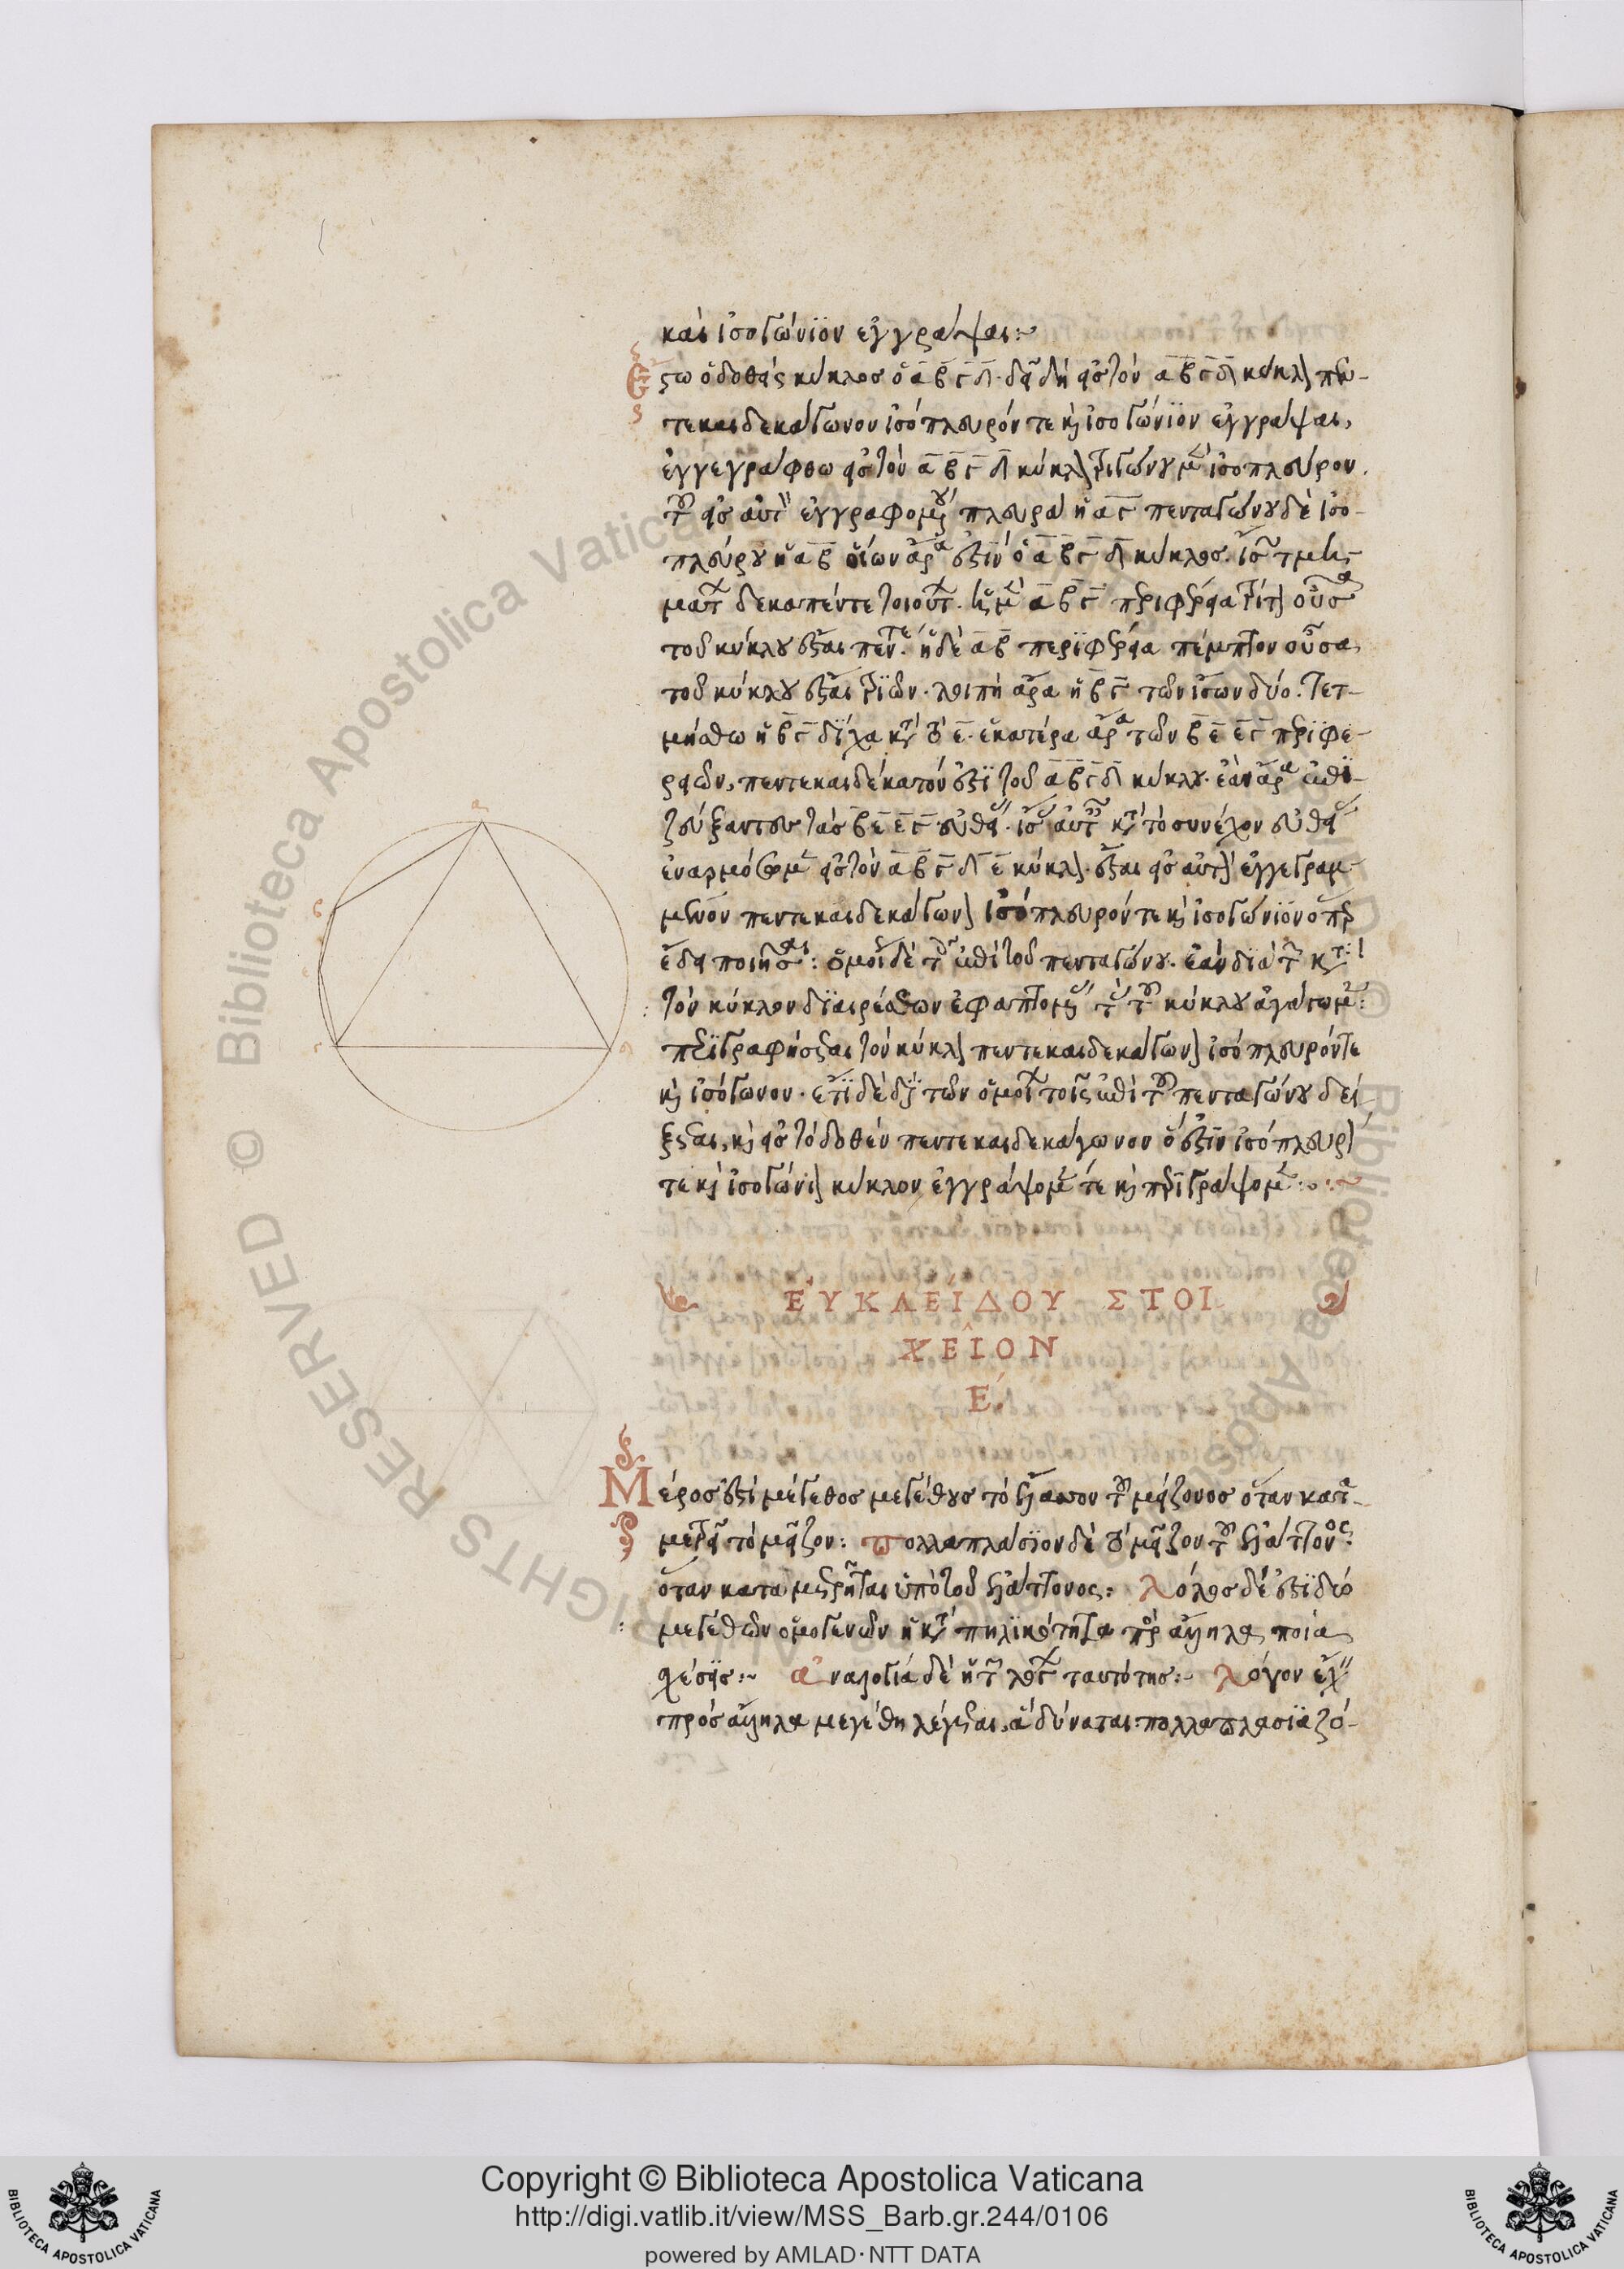 καὶ ἰσογώνϊον ἐγγράψαι:
Ἔστω ὁ δοθεὶς κύκλος ὁ α β γ δ. δεῖ δὴ εἰς τὸν α β γ δ κύκλον πεν-
τεκαιδεκάγωνον ἰσόπλευρόν τε καὶ ἰσογώνϊον ἐγγράψαι,
ἐγγεγράφθω εἰς τὸν α β γ δ κύκλον τριγώνου μὲν ἰσοπλεύρου.
τοῦ εἰς αὐτὸν ἐγγραφομένου πλευρὰ ἡ α γ πενταγώνου δὲ ἰσο-
πλεύρου ἡ α β οἵων ἄρα ἐστὶν ὁ α β γ δ κύκλος. ἴσων τμη-
μάτων δεκαπέντε τοιούτων. ἡ μὲν α β γ περιφέρεια τρίτον οὖσα
τοῦ κύκλου ἔσται πέντε. ἡ δὲ α β περϊφέρεια πέμπτον οὖσα
τοῦ κύκλου ἔσται τριῶν. λοιπὴ ἄρα ἡ β γ τῶν ἴσων δύο. τετ-
μήσθω ἡ β γ δίχα κατὰ τὸ ε. ἑκατέρα ἄρα τῶν β ε ε γ περϊφε-
ρειῶν, πεντεκαιδέκατόν ἐστϊ τοῦ α β γ δ κύκλου. ἐὰν ἄρα ἐπϊ-
ζεύξαντες τὰς β ε ε γ εὐθείας. ἴσας αὐταῖς κατὰ τὸ συνέχον εὐθείας
ἐναρμόσωμεν εἰς τὸν α β γ δ ε κύκλον. ἔσται εἰς αὐτὸν ἐγγεγραμ-
μένον πεντεκαιδεκάγωνον ἰσόπλευρόν τε καὶ ἰσογώνϊον ὅπερ
ἔδει ποιῆσαι: ὁμοίως δὲ τοῖς ἐπὶ τοῦ πενταγώνου. ἐὰν διὰ τῶν κατὰ
τὸν κύκλον διαιρέσεων ἐφαπτομένας τοῦ κύκλου ἀγάγωμεν:
περϊγραφήσεται τὸν κύκλον πεντεκαιδεκάγωνον ἰσόπλευρόν τε
καὶ ἰσόγωνον. ἔτϊ δὲ διὰ τῶν ὁμοίων τοῖς ἐπὶ τοῦ πενταγώνου δεί-
ξεται, καὶ εἰς τὸ δοθὲν πεντεκαιδεκάγωνον ὅ ἐστϊν ἰσόπλευρόν
τε καὶ ἰσογώνιον κύκλον ἐγγράψομέν τε καὶ περϊγράψομεν:
ΕΥΚΛΕΊΔΟΥ ΣΤΟΙ
ΧΕῖΟΝ
Έ.
Μέρος ἐστὶ μέγεθος μεγέθους τὸ ἔλασσον τοῦ μείζονος ὅταν κατα-
μετρεῖ τὸ μεῖζον: πολλαπλάσϊον δὲ τὸ μεῖζον τοῦ ἐλάττονος:
ὅταν καταμετρῆται ὑπὸ τοῦ ἐλάττονος: λόγος δέ ἐστϊ δύο
μεγεθῶν ὁμογενῶν ἡ κατὰ πηλϊκότητα πρὸς ἄλληλα ποιὰ
σχέσϊς: ἀναλογία δὲ ἡ τῶν λόγων ταυτότης: λόγον ἔχειν
πρὸς ἄλληλα μεγέθη λέγεται, ἃ δύναται πολλαπλασϊαζό-
α
β
ε
γ
δ
Copyright © Biblioteca Apostolica Vaticana
http://digi.vatlib.it/view/MSS_Barb.gr.244/0106
powered by AMLAD·NTT DATA
BIBLIOTECA APOSTOLICA VATICANA
BIBLIOTECA APOSTOLICA VATICANA